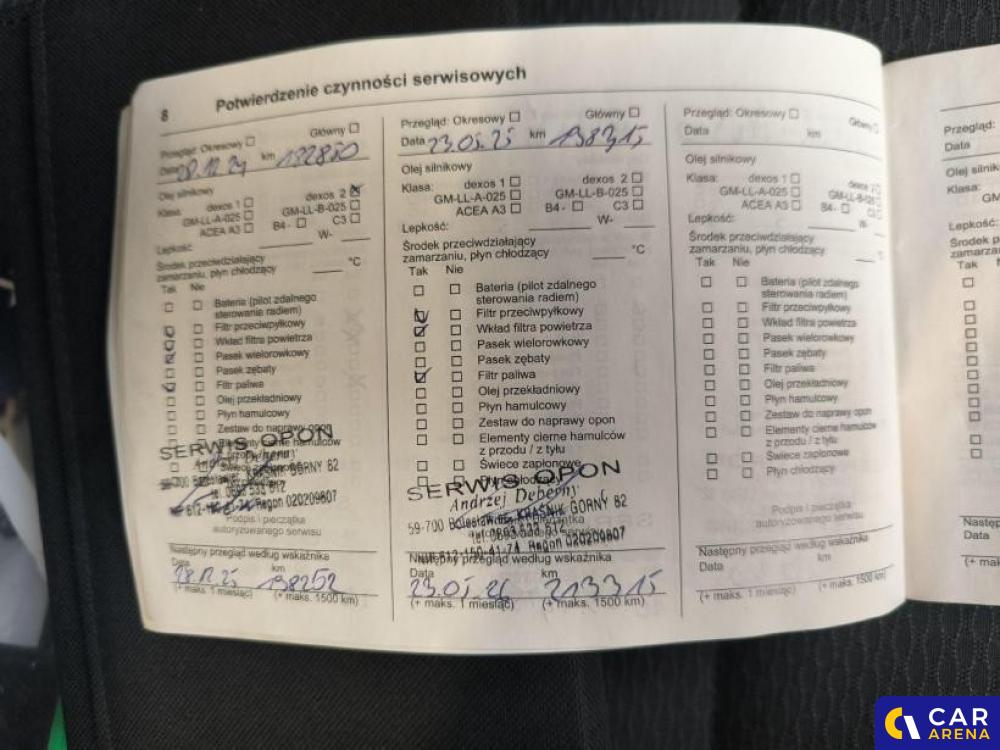 8 Potwierdzenie czynności serwisowych
Przegląd: Okresowy Główny
Data 28.12.24 km 132850
Olej silnikowy
Klasa: dexos 1 dexos 2
GM-LL-A-025 GM-LL-B-025
ACEA A3 B4- C3
Lepkość: W-
Środek przeciwdziałający
zamarzaniu, płyn chłodzący °C
Tak Nie
Bateria (pilot zdalnego
sterowania radiem)
Filtr przeciwpyłkowy
Wkład filtra powietrza
Pasek wielorowkowy
Pasek zębaty
Filtr paliwa
Olej przekładniowy
Płyn hamulcowy
Zestaw do naprawy opon
Elementy cierne hamulców
SERWIS OPON
KRAŚNIK GÓRNY 82
Regon 020209807
Podpis i pieczątka
autoryzowanego serwisu
Następny przegląd według wskaźnika
Data km
28.12.25 138252
(+ maks. 1 miesiąc) (+ maks. 1500 km)
Przegląd: Okresowy Główny
Data 23.05.25 km 138315
Olej silnikowy
Klasa: dexos 1 dexos 2
GM-LL-A-025 GM-LL-B-025
ACEA A3 B4- C3
Lepkość: W-
Środek przeciwdziałający
zamarzaniu, płyn chłodzący °C
Tak Nie
Bateria (pilot zdalnego
sterowania radiem)
Filtr przeciwpyłkowy
Wkład filtra powietrza
Pasek wielorowkowy
Pasek zębaty
Filtr paliwa
Olej przekładniowy
Płyn hamulcowy
Zestaw do naprawy opon
Elementy cierne hamulców
z przodu / z tyłu
Świece zapłonowe
SERWIS OPON
Andrzej Deberny
59-700 Bolesławiec, KRAŚNIK GÓRNY 82
Regon 020209807
Następny przegląd według wskaźnika
Data km
23.05.26 213315
(+ maks. 1 miesiąc) (+ maks. 1500 km)
Przegląd: Okresowy Główny
Data km
Olej silnikowy
Klasa: dexos 1 dexos 2
GM-LL-A-025 GM-LL-B-025
ACEA A3 B4- C3
Lepkość: W-
Środek przeciwdziałający
zamarzaniu, płyn chłodzący °C
Tak Nie
Bateria (pilot zdalnego
sterowania radiem)
Filtr przeciwpyłkowy
Wkład filtra powietrza
Pasek wielorowkowy
Pasek zębaty
Filtr paliwa
Olej przekładniowy
Płyn hamulcowy
Zestaw do naprawy opon
Elementy cierne hamulców
z przodu / z tyłu
Świece zapłonowe
Płyn chłodzący
Podpis i pieczątka
autoryzowanego serwisu
Następny przegląd według wskaźnika
Data km
(+ maks. 1 miesiąc) (+ maks. 1500 km)
Przegląd:
Data
Klasa:
Lepkość:
Tak
Data
CAR
ARENA